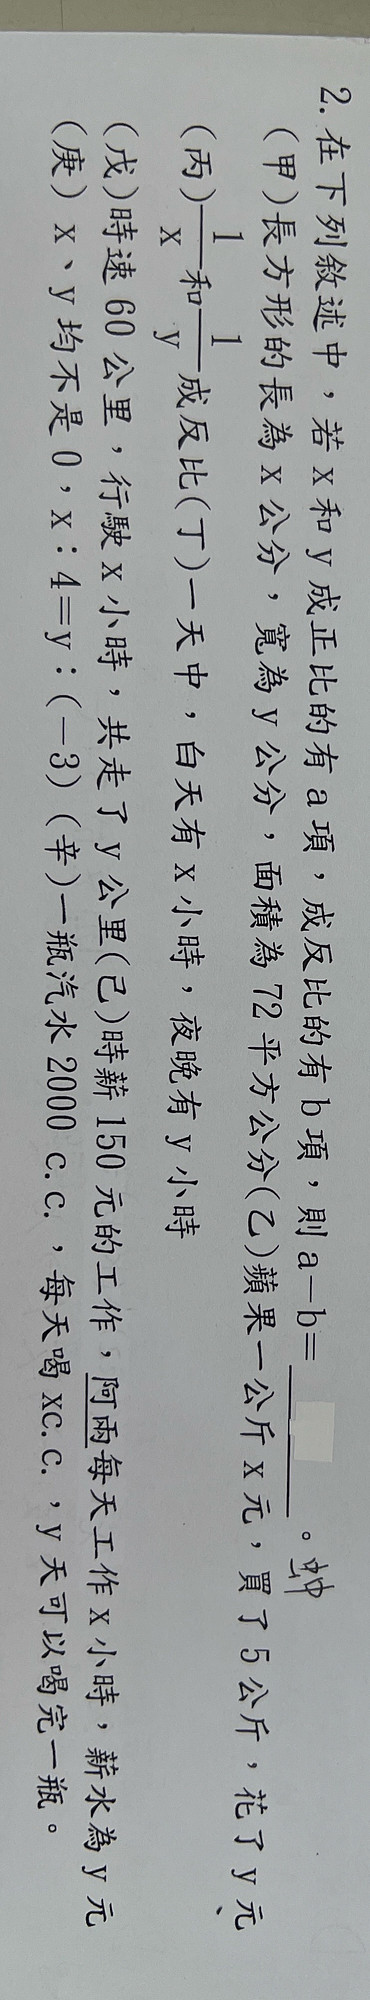 2. 在下列敘述中，若 x 和 y 成正比的有 a 項，成反比的有 b 項，則 a－b＝＿＿＿＿。
(甲)長方形的長為 x 公分，寬為 y 公分，面積為 72 平方公分(乙)蘋果一公斤 x 元，買了 5 公斤，花了 y 元、
(丙)1/x 和 1/y 成反比(丁)一天中，白天有 x 小時，夜晚有 y 小時
(戊)時速 60 公里，行駛 x 小時，共走了 y 公里(己)時薪 150 元的工作，阿雨每天工作 x 小時，薪水為 y 元
(庚) x、y 均不是 0，x：4＝y：(－3) (辛)一瓶汽水 2000 c.c.，每天喝 xc.c.，y 天可以喝完一瓶。